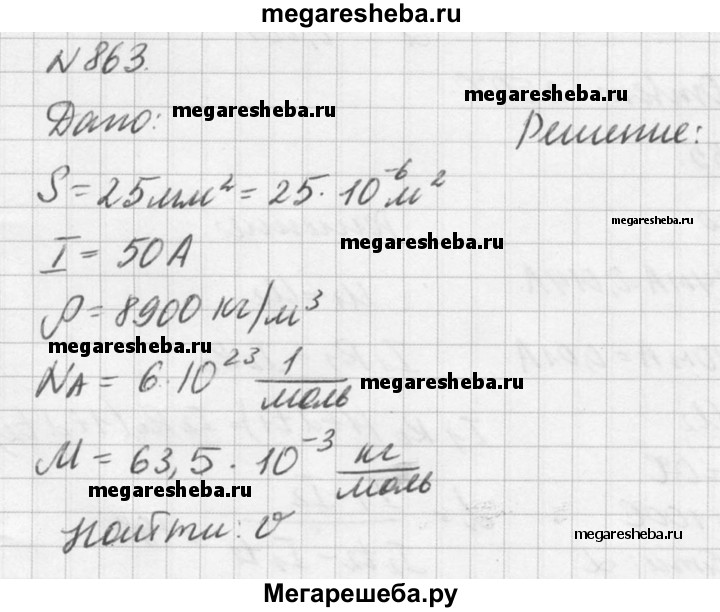 megaresheba.ru
N 863.
megaresheba.ru
Дано: megaresheba.ru
Решение:
S = 25мм² = 25 · 10⁻⁶ м²
megaresheba.ru
I = 50 А
megaresheba.ru
ρ = 8900 кг/м³
megaresheba.ru
N_A = 6·10²³ 1/моль
megaresheba.ru
M = 63,5 · 10⁻³ кг/моль
megaresheba.ru
найти: υ
megaresheba.ru
Мегарешеба.ру